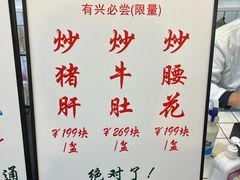 有兴必尝(限量)
炒猪肝
¥199块
1盆
炒牛肚
¥269块
1盆
炒腰花
¥199块
1盆
通
绝对了！